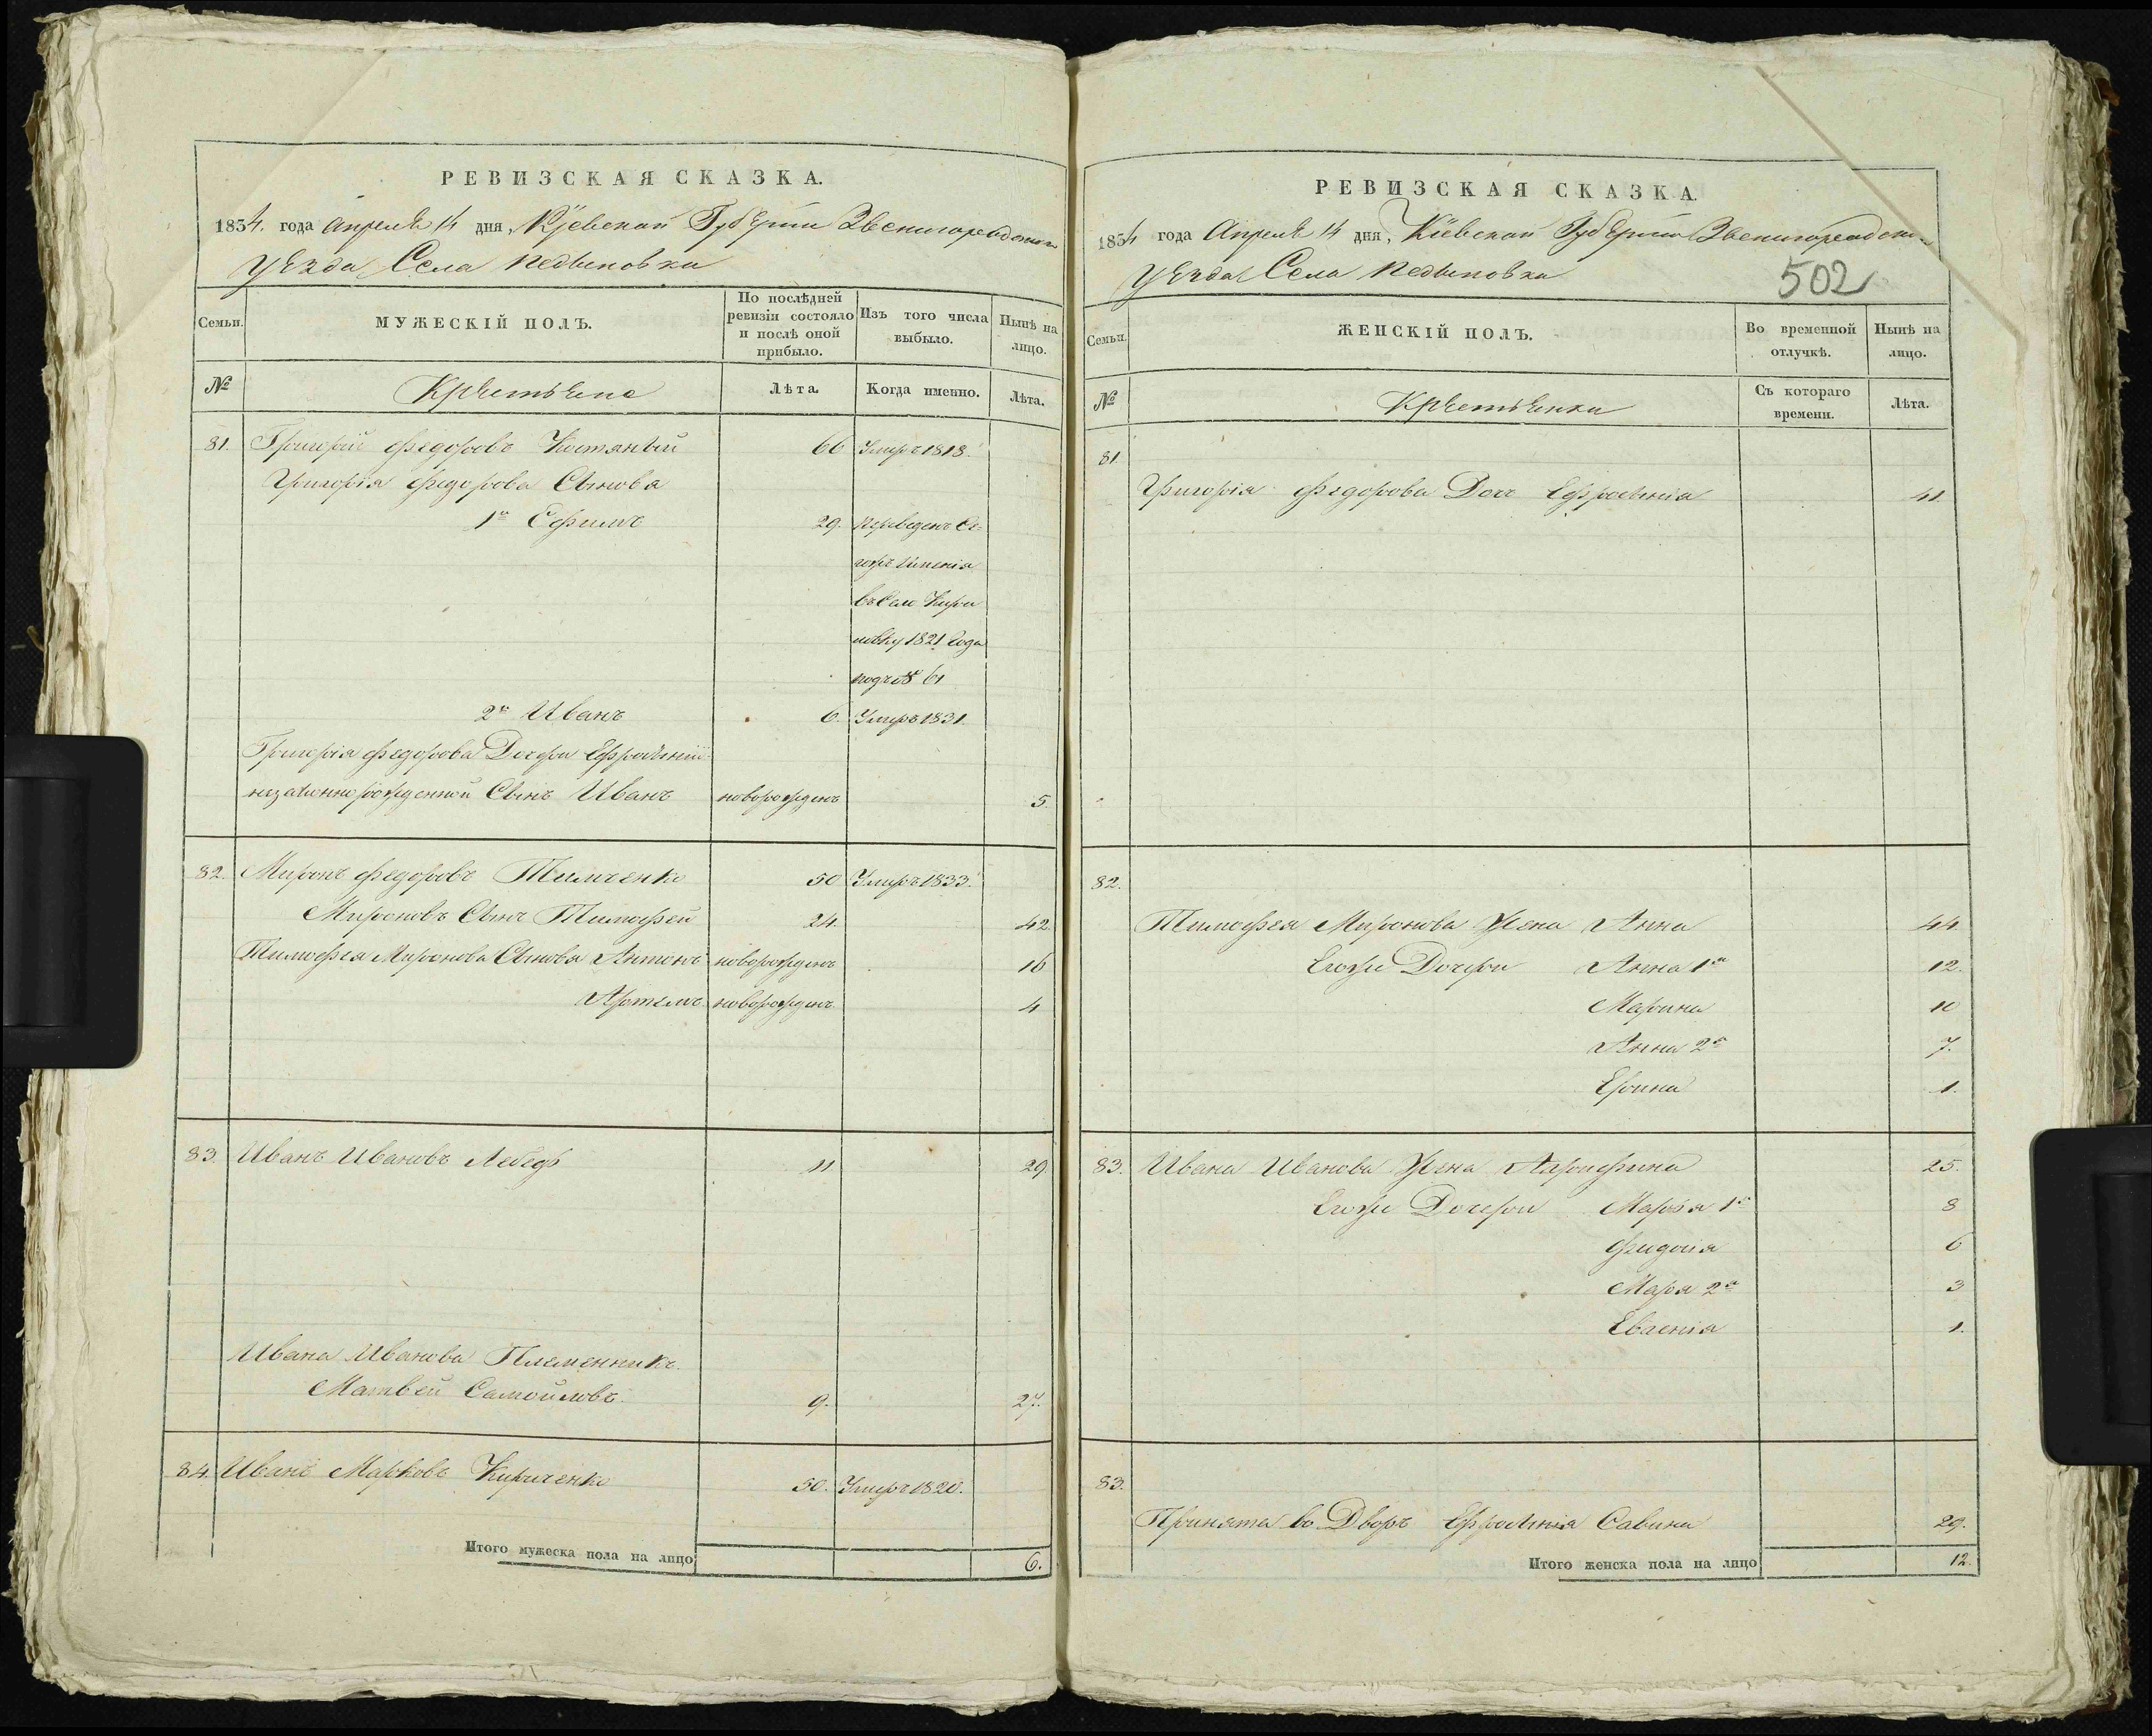 РЕВИЗСКАЯ СКАЗКА.
1854. года Апреля 14 дня, Кіевской Губерніи Звенигородскаго
уезда Села Педыновки
Семьи.
МУЖЕСКІЙ ПОЛЪ.
По послѣдней ревизіи состояло и послѣ оной прибыло.
Изъ того числа выбыло.
Нынѣ на лицо.
№
Крестьяне
Лѣта.
Когда именно.
Лѣта.
81. Григорій Федоровъ 66 Умеръ 1818.
Григорія Федорова Сыновья
1й Ефимъ 29. Переведенъ
имения
въ Сел Кири
ловку 1821 года
подъ № 61
2й Иванъ 6. Умеръ 1831.
Григорія Федорова Дочери Ефросиніи
незаконнорожденной Сынъ Иванъ новорожденъ 5.
82. Миронъ Федоровъ Тимченко 50 Умеръ 1833.
Мироновъ Сынъ Тимофей 24. 42.
Тимофея Миронова Сыновья Антонъ новорожденъ 16
Артемъ новорожденъ 4
83. Иванъ Ивановъ Лебедь 11 29.
Ивана Иванова Племенникъ
Матвей Самойловъ 9. 27.
84. Иванъ Марковъ Кириченко 50. Умеръ 1820.
Итого мужеска пола на лицо 6.
РЕВИЗСКАЯ СКАЗКА.
1854 года Апреля 14 дня, Кіевской Губерніи
уезда Села Педыновки
502
Семьи.
ЖЕНСКІЙ ПОЛЪ.
Во временной отлучкѣ.
Нынѣ на лицо.
№
Крестьянки
Съ котораго времени.
Лѣта.
81.
Григорія Федорова Дочь Ефросинія 41.
82.
Тимофея Миронова Жена Анна 44.
Егоже Дочери Анна 1я 12.
Марина 10
Анна 2я 7.
Ерина 1.
83. Ивана Иванова Жена 25.
Егоже Дочери Марья 1я 8
Феодосія 6
Маря 2я 3
Евгенія 1.
83.
Принята во Дворъ Ефросинія Савина 29.
Итого женска пола на лицо 12.